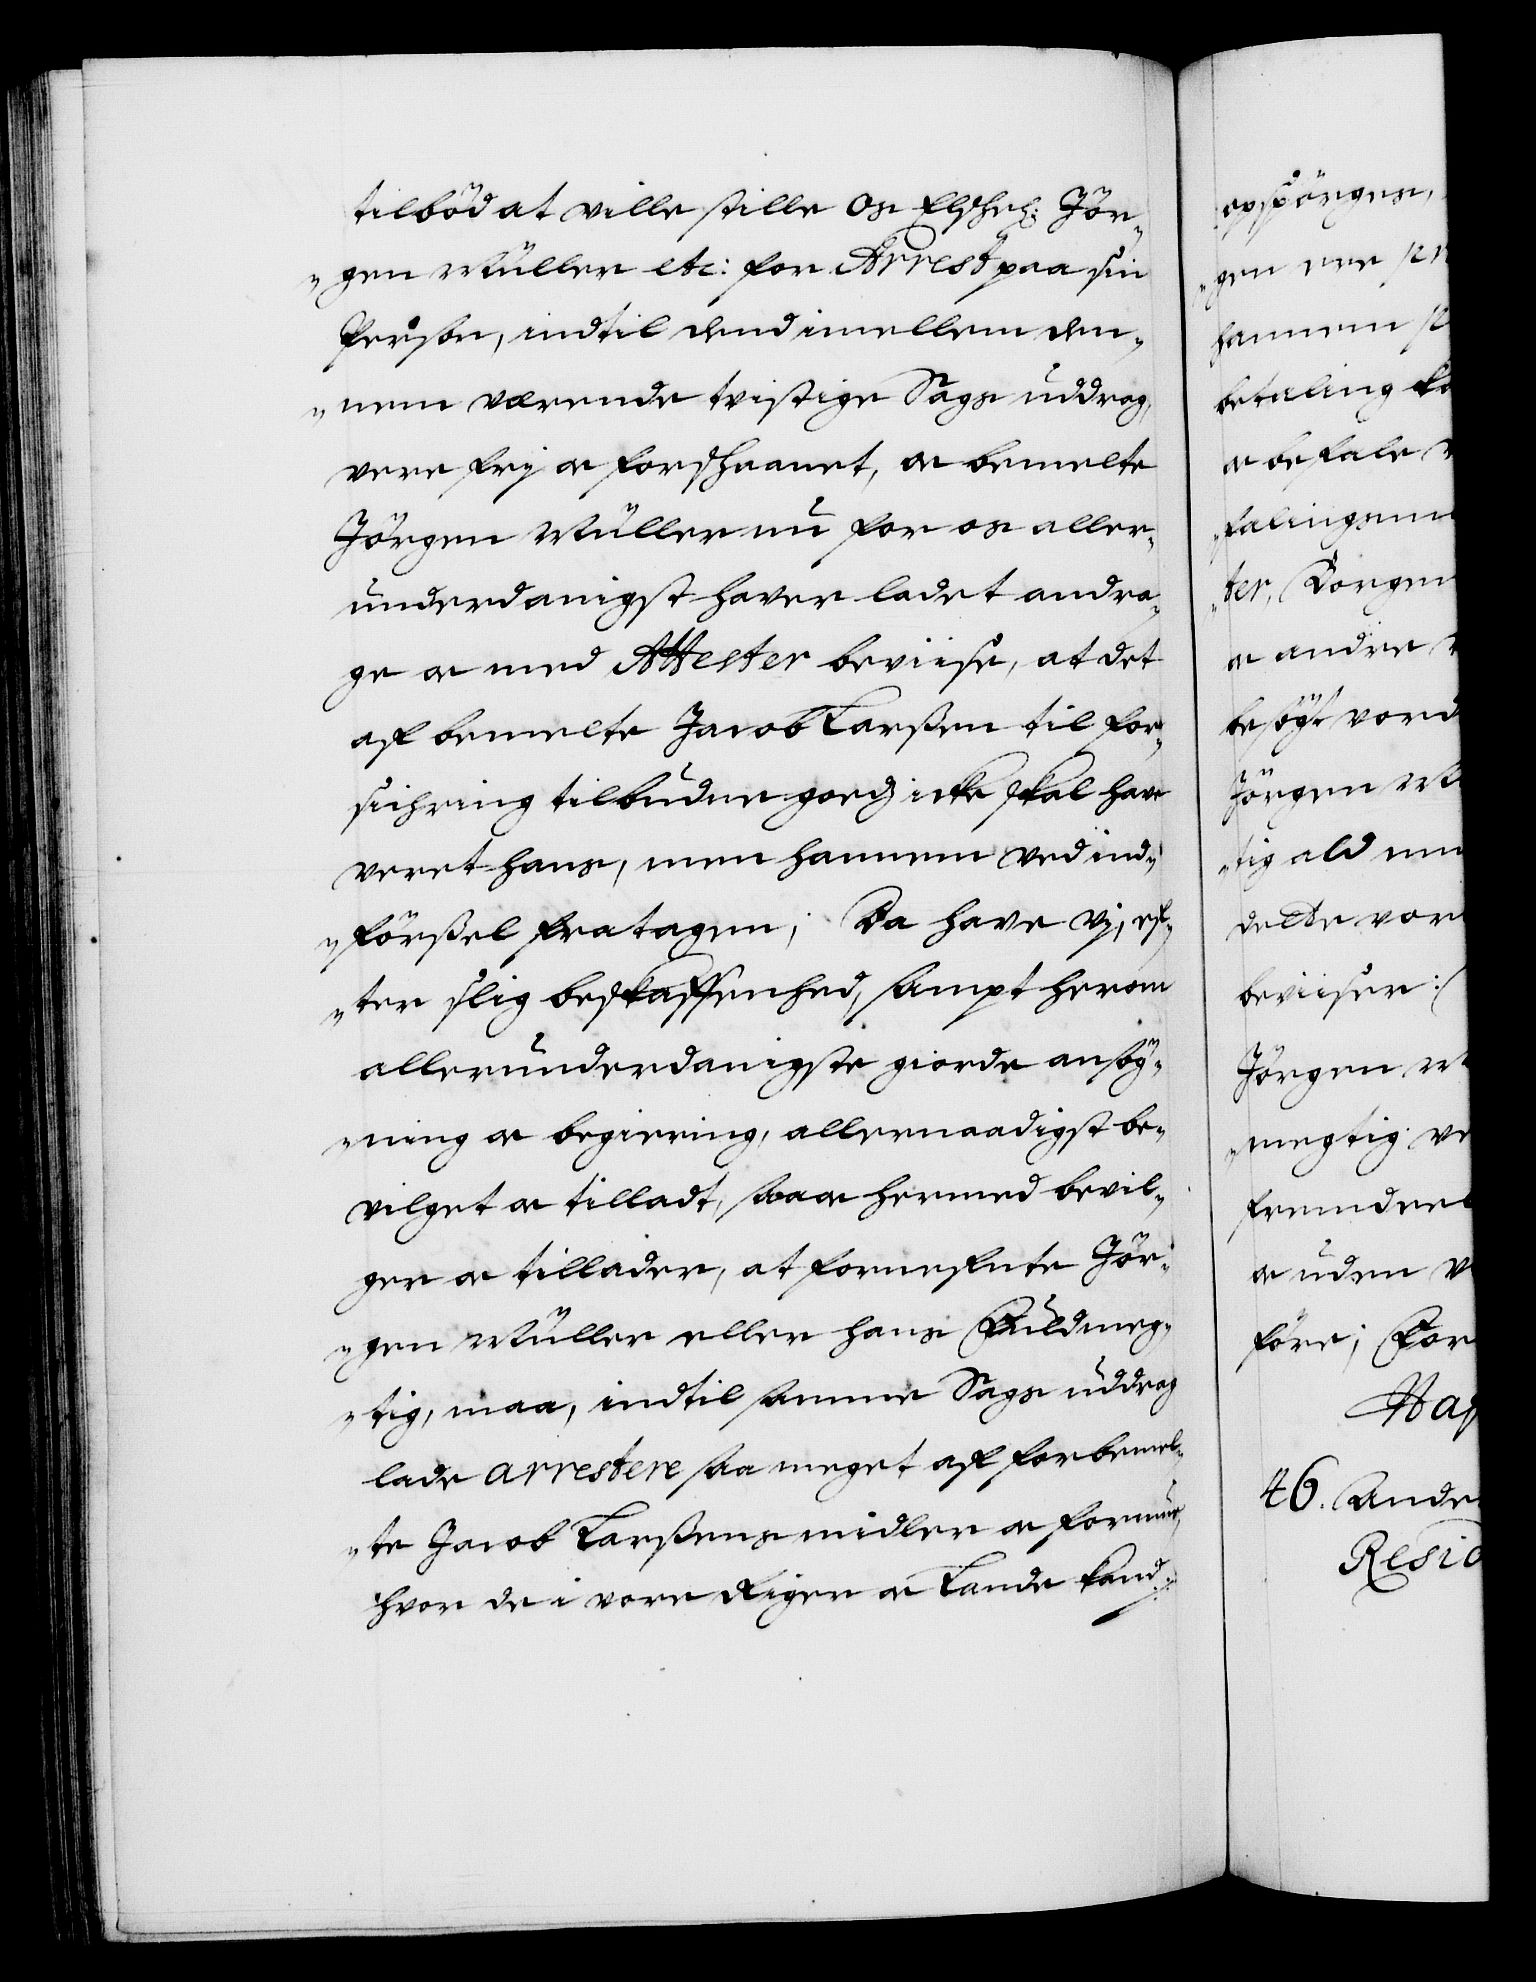 tilböd at ville stille Os Elschel: Jör¬
„gen Müller etc: for Arrest paa sin
Person, indtil dend imellem den¬
„nem værende tvistige Sags uddrag,
være frj oc forschaanet, oc bemelte
Jörgen Müller nu for os aller¬
underdanigst haver ladet andra¬
ge oc med Attester beviise, at det
aff bemelte Jacob Larßen til for¬
sichring tilbudne gods icke skal have
veret hans, men hannem ved ind¬
„förßel fratagen; Da have Vj, ef¬
„ter slig beskaffenhed, sampt herom
allerunderdanigste giorde ansög¬
„ning oc begiering, allernaadigst be¬
vilget oc tilladt, saa oc hermed bevil¬
ger oc tillader, at fornefnte Jör¬
„gen Müller eller hans Fuldmeg¬
„tig, maa, indtil samme Sags uddrag
lade arrestere saa meget aff forbemel¬
„te Jacob Larßens midler oc formue,
hvor de i vore Riger oc Lande kand
opspörges,
„gen
hannem
betaling
oc befale
„falingsm
„ter, Borgem
oc andre
besögt vord
Jörgen M
„tig ald
dette vor
beviiser:/
Jörgen M
„megtig
fremdeel
oc uden
före; For
Haf
46. Ande
Resid